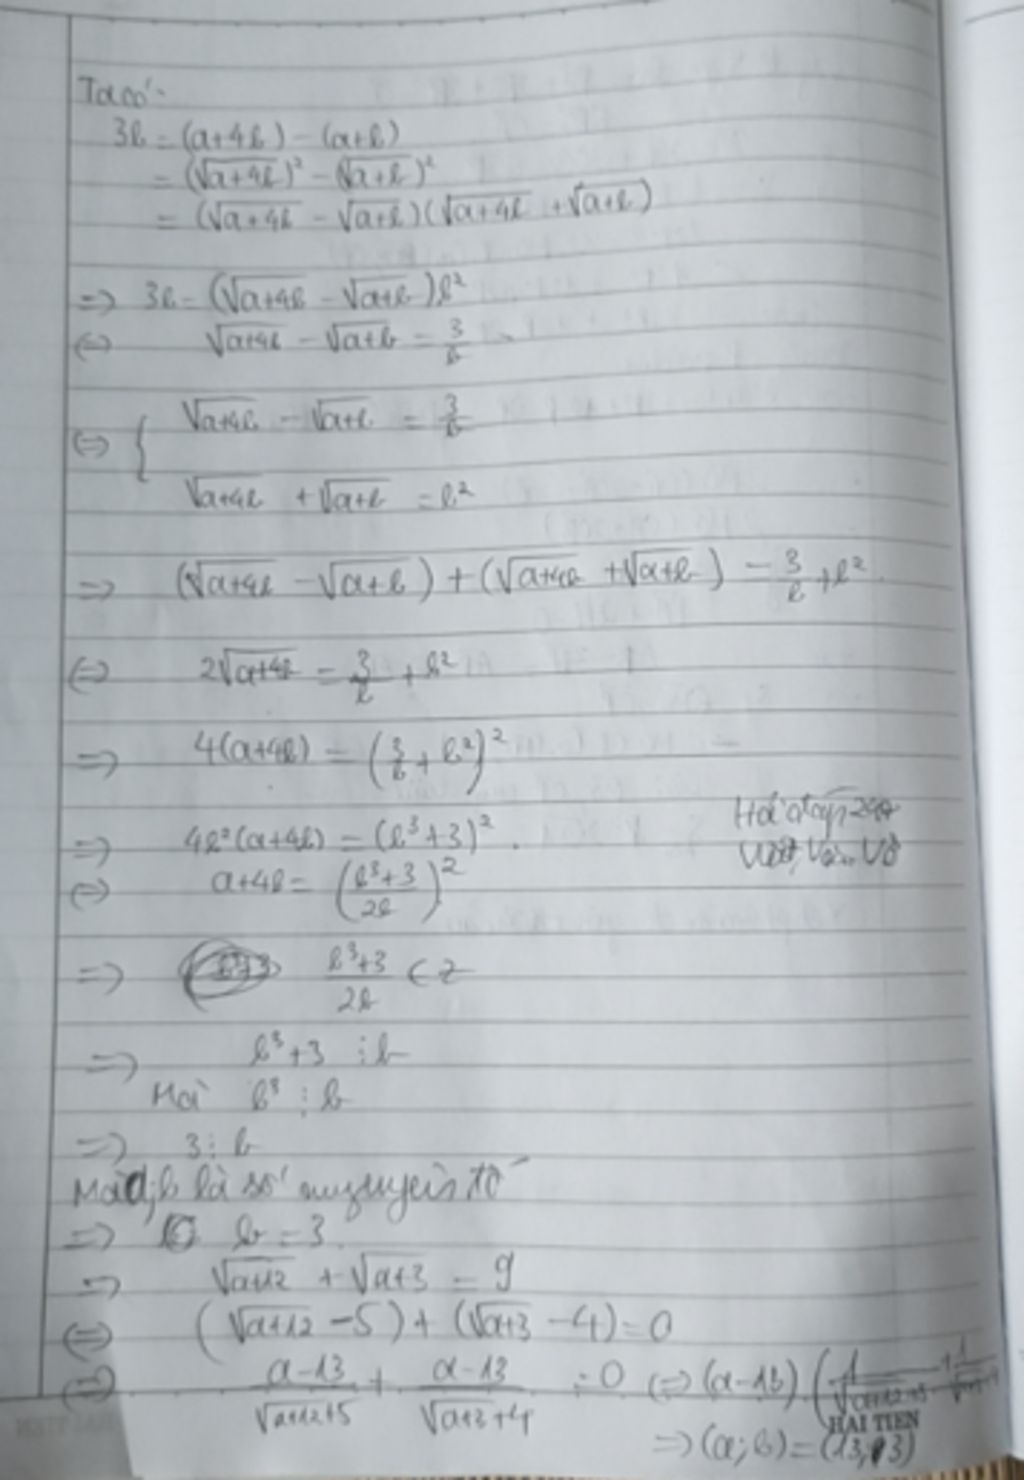 Ta có:
3b = (a+4b) - (a+b)
= (√(a+4b))² - (√(a+b))²
= (√(a+4b) - √(a+b))(√(a+4b) + √(a+b))
=> 3b = (√(a+4b) - √(a+b))b²
<=> √(a+4b) - √(a+b) = 3/b
<=> { √(a+4b) - √(a+b) = 3/b
√(a+4b) + √(a+b) = b²
=> (√(a+4b) - √(a+b)) + (√(a+4b) + √(a+b)) = 3/b + b²
<=> 2√(a+4b) = 3/b + b²
=> 4(a+4b) = (3/b + b²)²
=> 4b²(a+4b) = (b³+3)².
<=> a+4b = ((b³+3)/2b)²
=> (b³+3)/2b ∈ Z
=> b³+3 ⋮ b
Mà b³ ⋮ b
=> 3 ⋮ b
Mà a;b là số nguyên tố
=> b = 3
=> √(a+12) + √(a+3) = 9
<=> (√(a+12) - 5) + (√(a+3) - 4) = 0
<=> (a-13)/(√(a+12)+5) + (a-13)/(√(a+3)+4) = 0 <=> (a-13)(1/(√(a+12)+5) + 1/
HAI TIEN
=> (a;b) = (13;3)